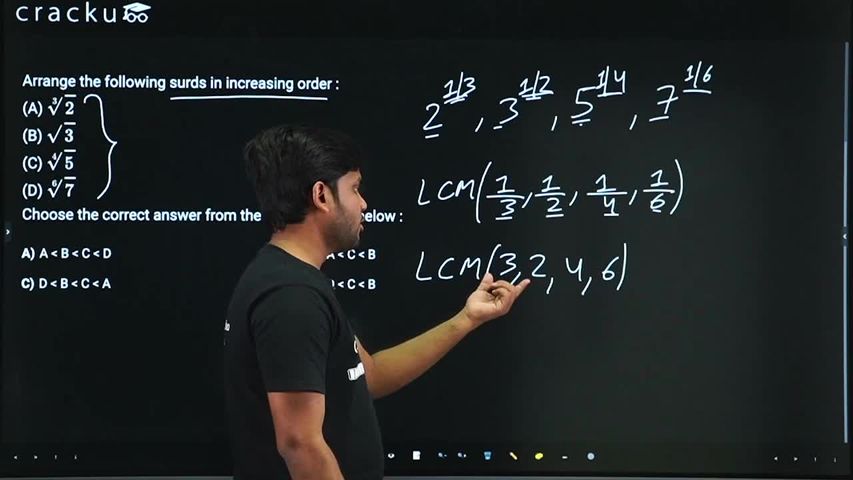 cracku
Arrange the following surds in increasing order :
(A) ∛2
(B) √3
(C) ∜5
(D) ⁶√7
Choose the correct answer from the
elow :
A) A < B < C < D
< C < B
C) D < B < C < A
< C < B
2^(1/3), 3^(1/2), 5^(1/4), 7^(1/6)
LCM(1/3, 1/2, 1/4, 1/6)
LCM(3, 2, 4, 6)